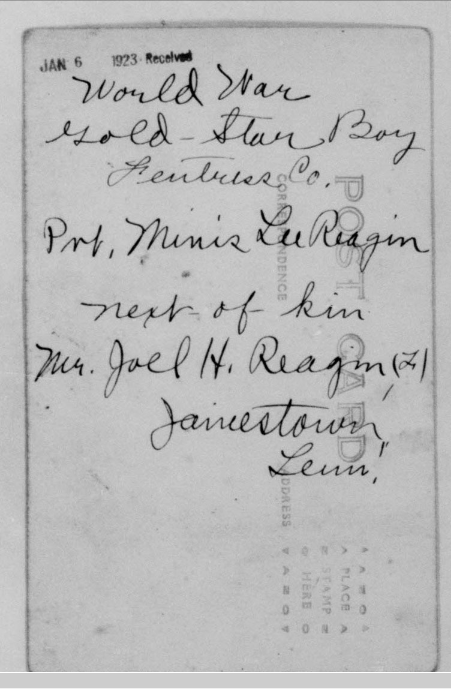 JAN 6 1923 Received
World War
Gold-Star Boy
Fentress Co.
Pvt. Minis Lee Reagin
next of kin
Mr. Joel H. Reagin (F)
Jamestown,
Tenn.
POST CARD
CORRESPONDENCE
ADDRESS
PLACE
STAMP
HERE